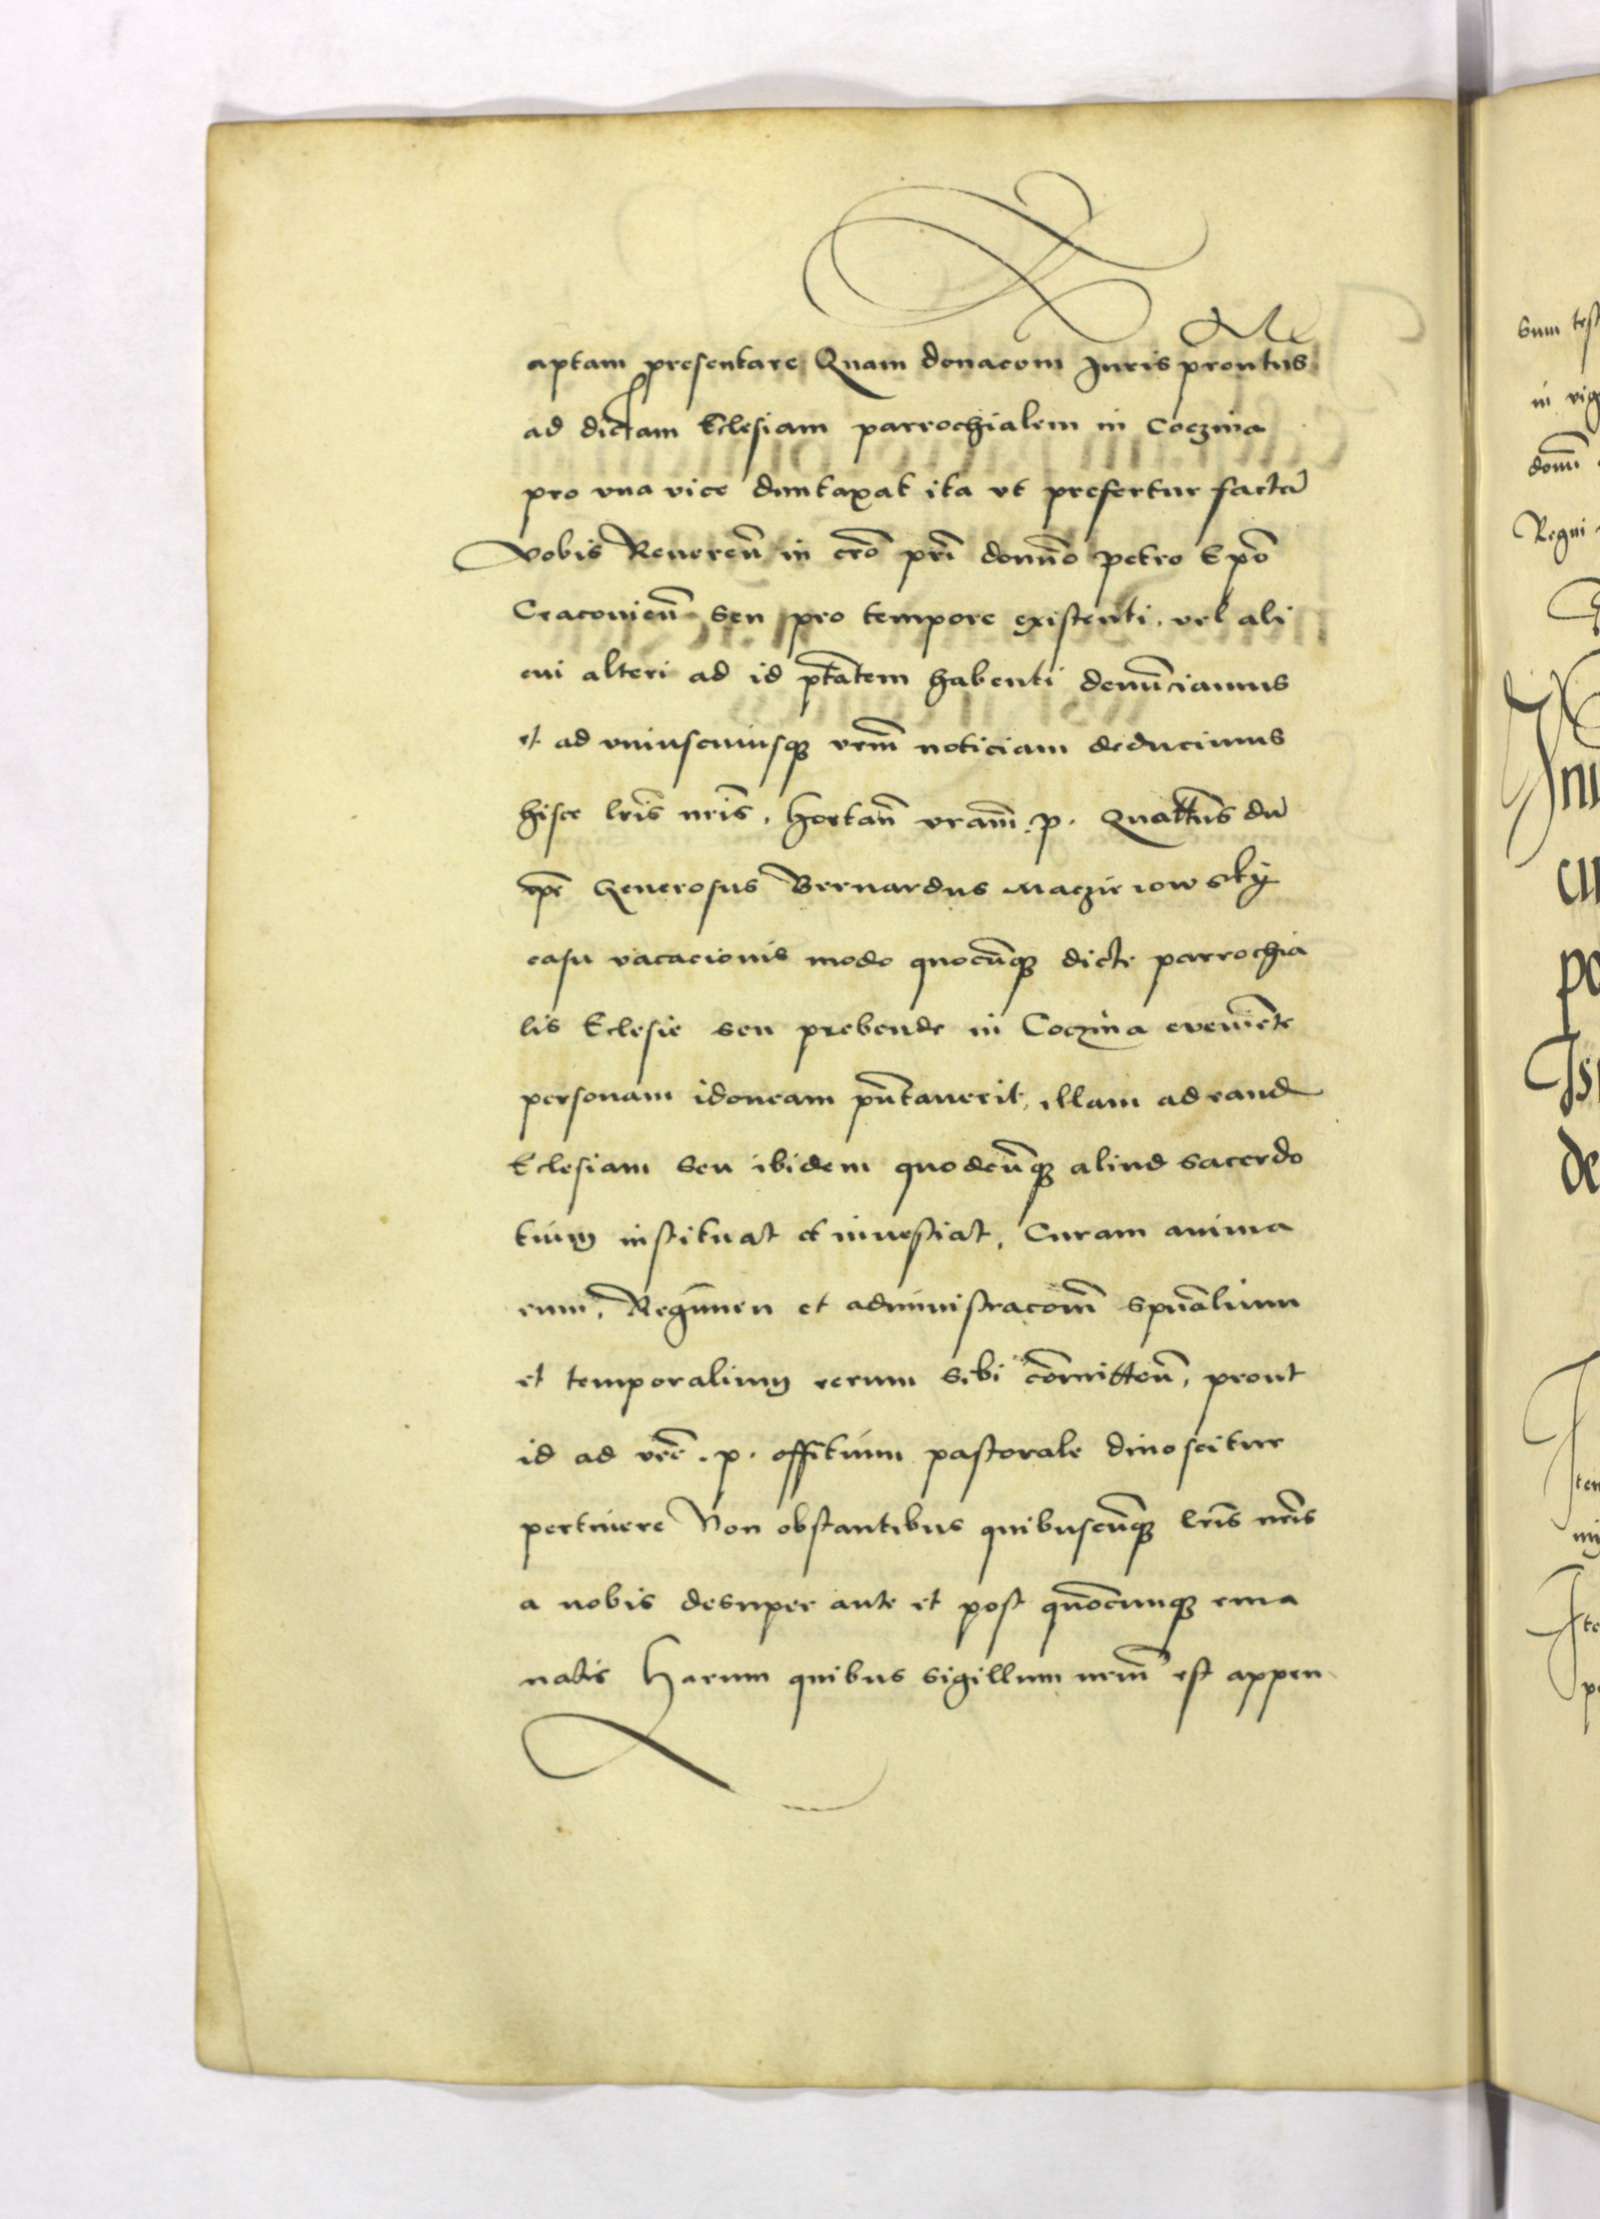 aptam presentare Quam donacom Juris prontus
ad dictam Eclesiam parrochialem in Coczina
pro vna vice duntaxat ita vt prefertur factã
Vobis Reueren̄ in cr̄o pr̄i domn̄o Petro Ep̄o
Cracouien̄ seu pro tempore existenti, vel ali
cui alteri ad id pt̄atem habenti denūciamus
et ad vniuscuiusq̨ vrm̄ noticiam deducimus
hisce lr̄is nr̄is, hortan̄ vram̄ .p. Quat̄tus dū
Generosus Bernardus Maczieiowsky
casu vacacionis modo quocūq̨ dicte parrochia
lis Eclesie seu prebende in Coczina eveniēte
personam idoneam pn̄tauerit, illam ad eand
Eclesiam seu ibidem quodcūq̨ aliud sacerdo
tium instituat et inuestiat, Curam anima
rum, Regimen et administracom̄ spūalium
et temporalium rerum sibi com̄itten̄, prout
id ad vr̄e .p. offitium pastorale dinoscitur
pertinere Non obstantibus quibuscūq̨ lr̄is nr̄is
a nobis desuper ante et post quōcunq̨ ema
natis Harum quibus sigillum nrm̄ est appen
sum test
in vig
domī
Regni
Ini
cu
po
Is
de
Item
Ite